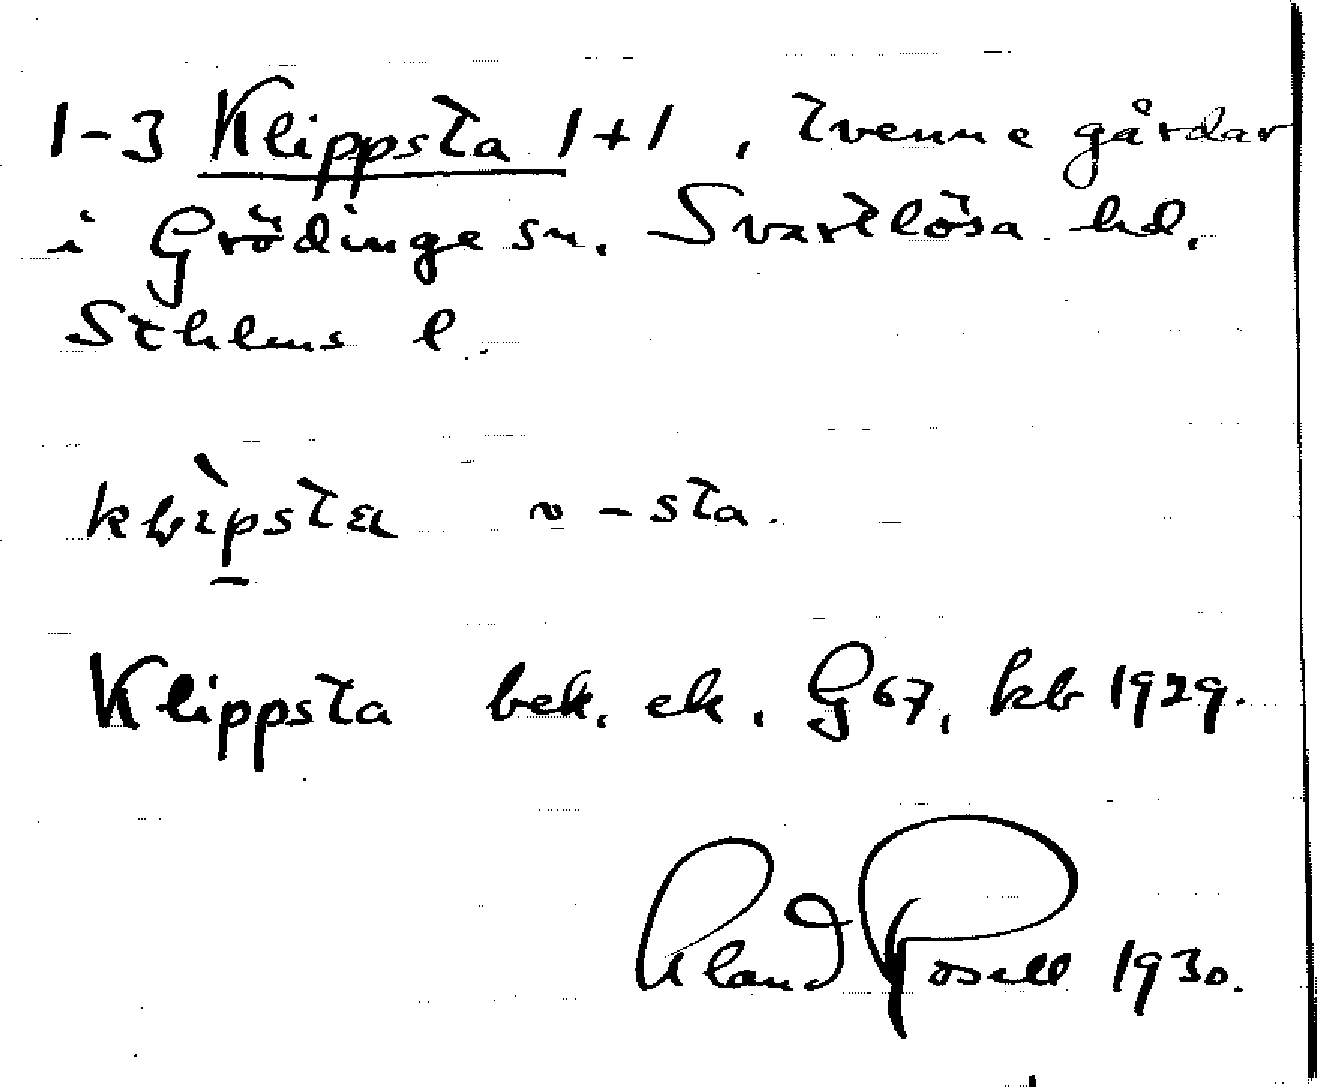 1-3 Klippsta 1+1, tvenne gårdar
i Grödinge sn. Svartlösa hd.
Sthlms l.
~ -sta.
Klippsta bek. ek. G 67, kb 1929.
Erland Rosell 1930.